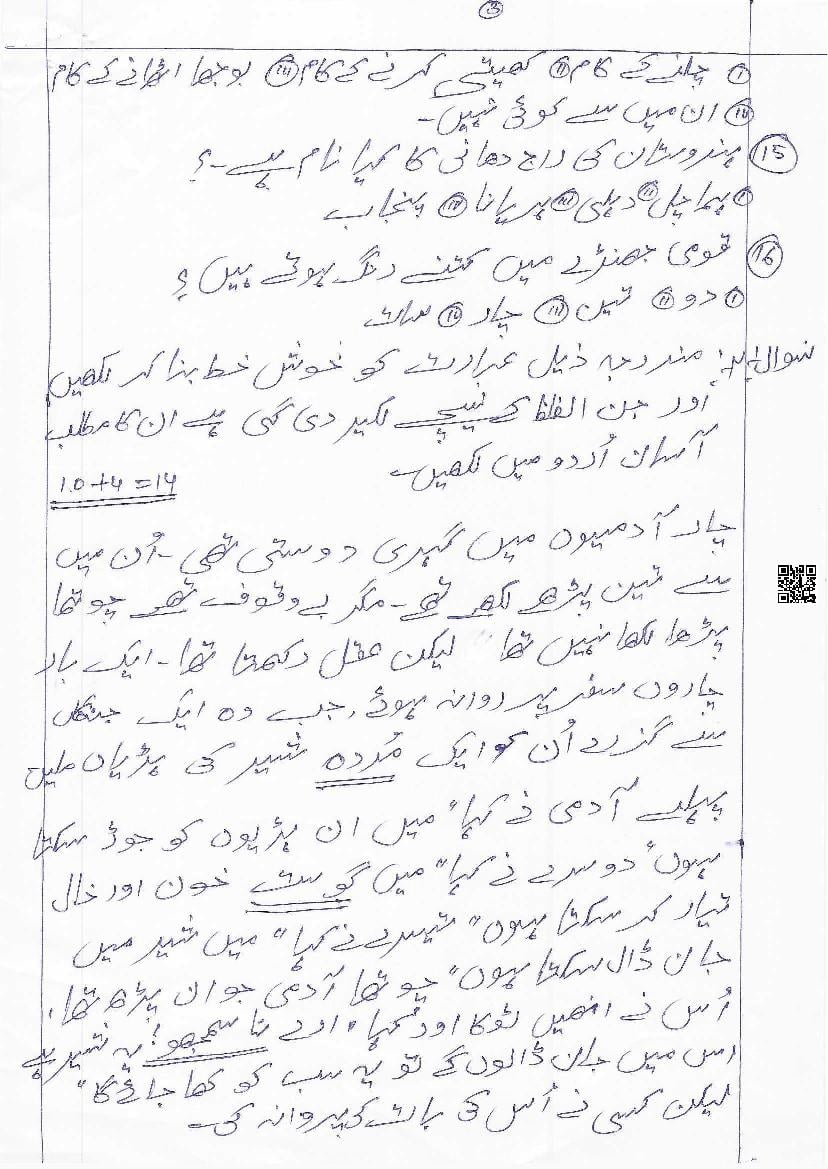 3
(i) چلنے کے کام (ii) کھیتی کرنے کے کام (iii) بوجھا اٹھانے کے کام
(iv) ان میں سے کوئی نہیں۔
(15) ہندوستان کی راج دھانی کا کیا نام ہے۔؟
(i) ہماچل (ii) دہلی (iii) ہریانا (iv) پنجاب
(16) قومی جھنڈے میں کتنے رنگ ہوتے ہیں؟
(i) دو (ii) تین (iii) چار (iv) سات
سوال مندرجہ ذیل عبارت کو خوش خط بنا کر لکھیں
اور جن الفاظ کے نیچے لکیر دی گئی ہے ان کا مطلب
آسان اُردو میں لکھیں۔
10+4=14
چار آدمیوں میں گہری دوستی تھی۔ اُن میں
سے تین پڑھے لکھے تھے۔ مگر بے وقوف تھے چوتھا
پڑھا لکھا نہیں تھا لیکن عقل رکھتا تھا۔ ایک بار
چاروں سفر پر روانہ ہوئے، جب وہ ایک جنگل
سے گزرے اُن کو ایک مُردہ شیر کی ہڈیاں ملیں
پہلے آدمی نے کہا "میں ان ہڈیوں کو جوڑ سکتا
ہوں" دوسرے نے کہا "میں گوست خون اور خال
تیار کر سکتا ہوں" تیسرے نے کہا "میں شیر میں
جان ڈال سکتا ہوں" چوتھا آدمی جو ان پڑھ تھا،
اُس نے انھیں ٹوکا اور کہا "ارے نا سمجھو! یہ شیر ہے
اس میں جان ڈالوں گے تو یہ سب کو کھا جائے گا"
لیکن کسی نے اُس کی بات کی پروا نہ کی۔